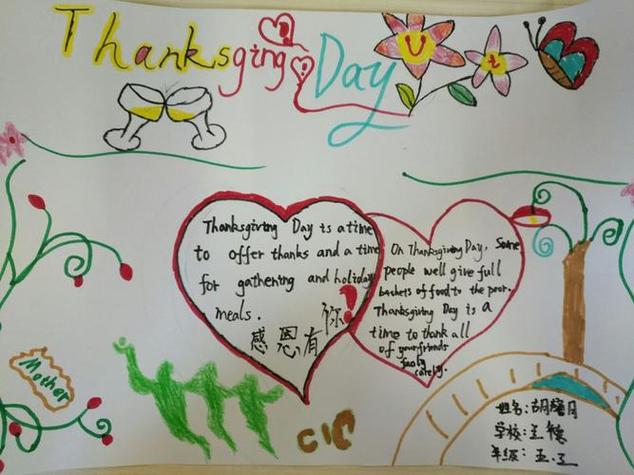 Thanksging Day
U
i
Thanksgiving Day is a time
to offer thanks and a time
for gathering and holiday
meals.
感恩有你!
On Thanksgiving Day, Some
people well give full
baskets of food to the poor.
Thanksgiving Day is a
time to thank all
of your friends
Mother
姓名:胡
月
学校:王
年级:五.